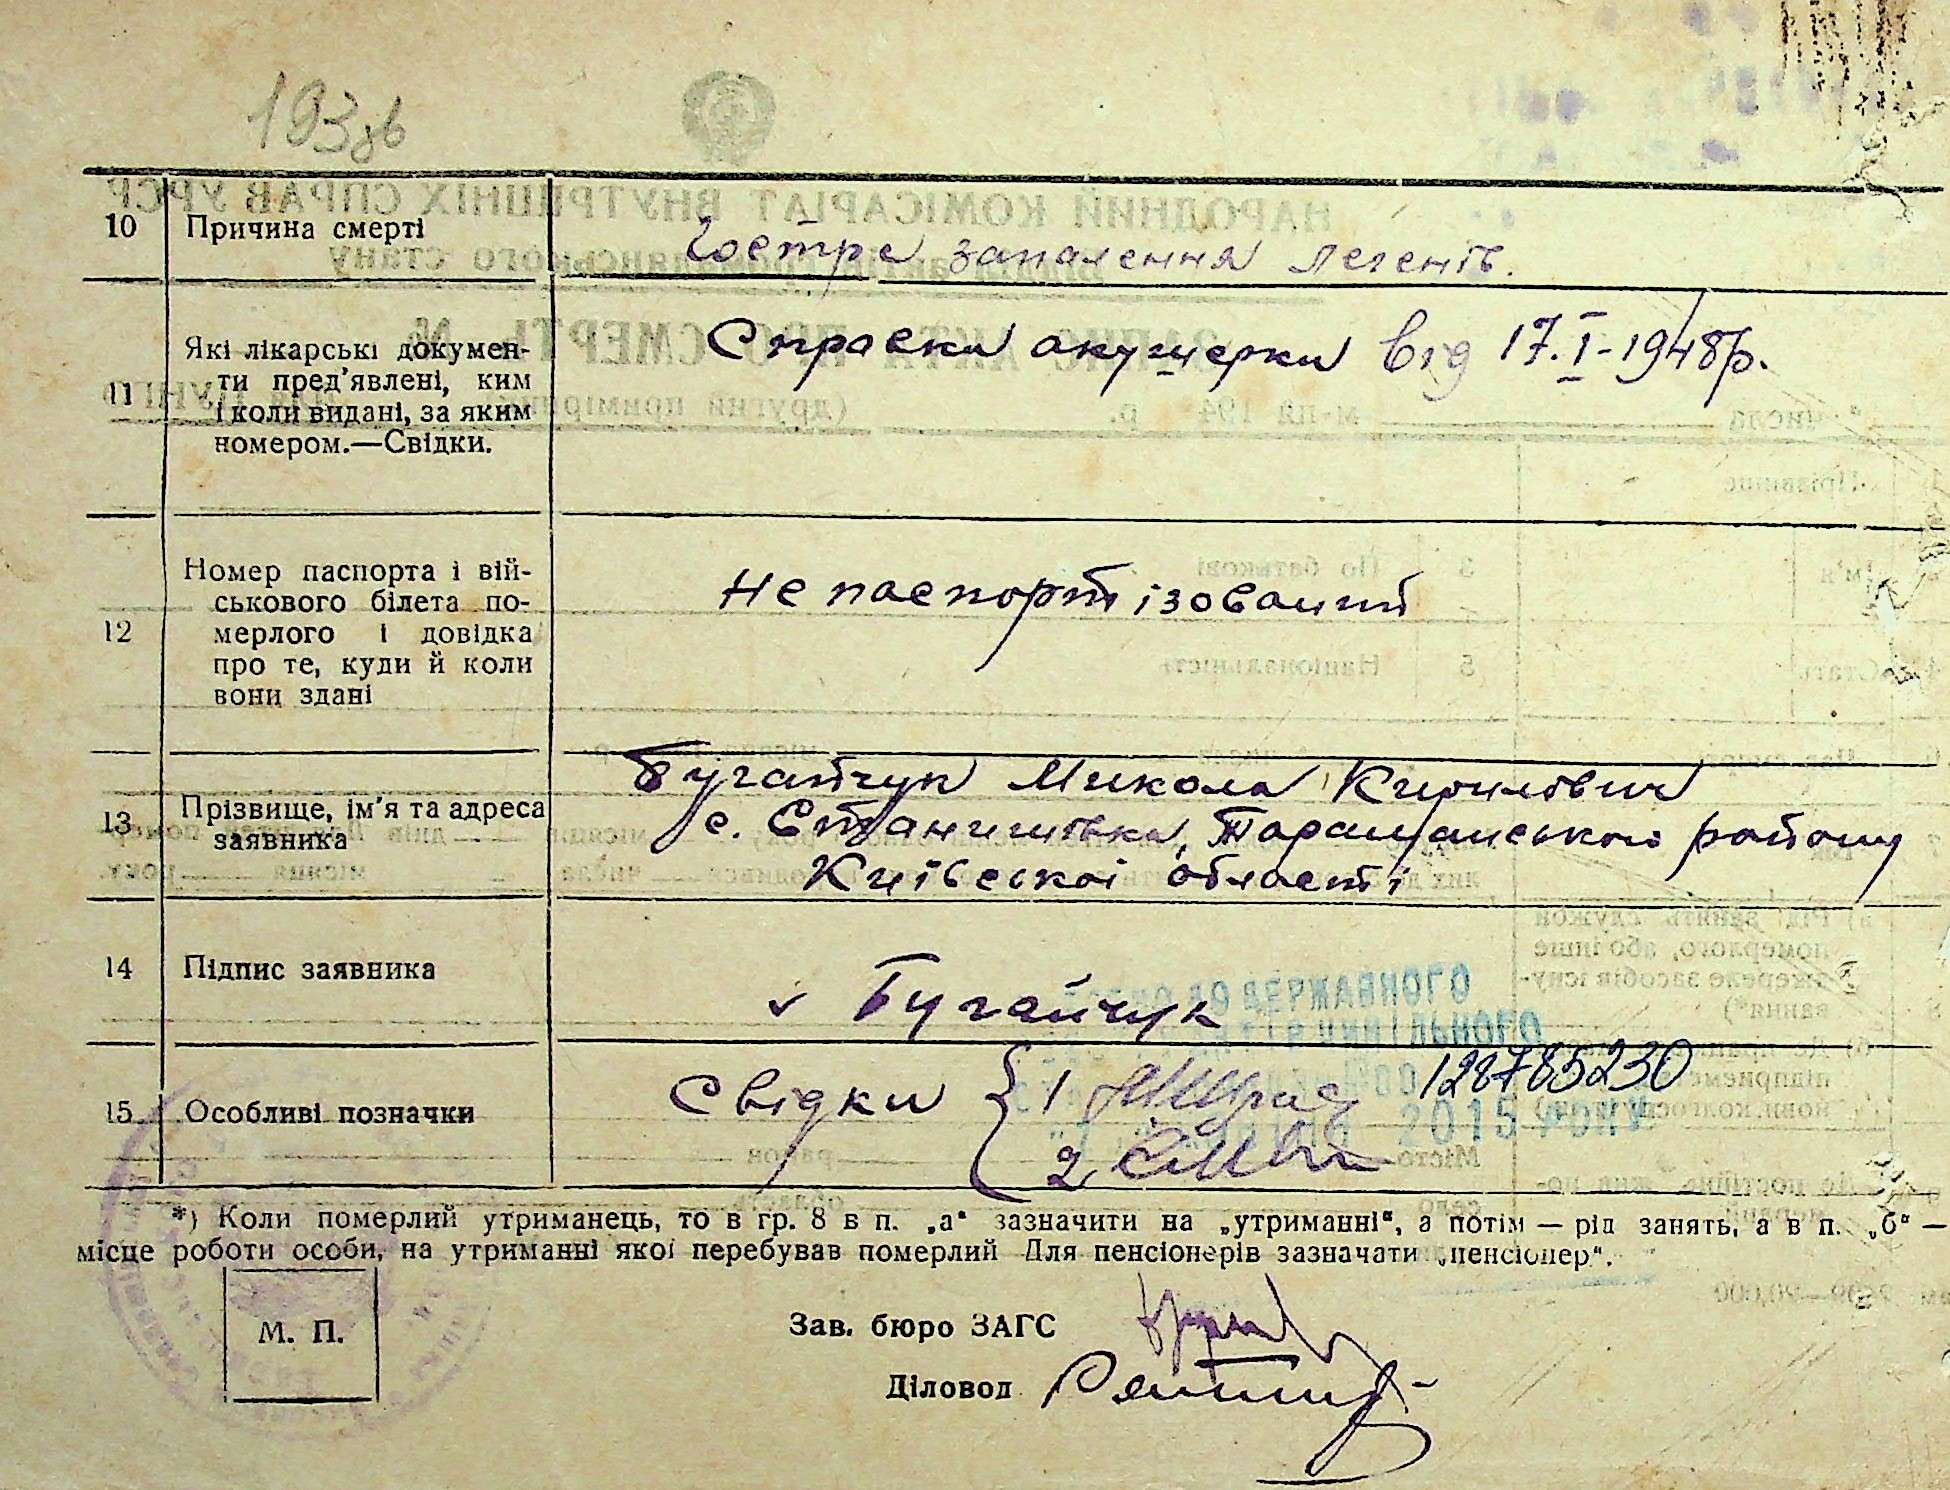 193 зв
10 Причина смерті
Гостре запалення легенів.
11 Які лікарські докумен-
ти пред'явлені, ким
і коли видані, за яким
номером.—Свідки.
Справки акушерки від 17.I-1948р.
12 Номер паспорта і вій-
ськового білета по-
мерлого і довідка
про те, куди й коли
вони здані
Не паспортізований
13 Прізвище, ім'я та адреса
заявника
Бугайчук Микола Кирилович
с. Станишівка, Таращанського району
Київської області
14 Підпис заявника
v Бугайчук
ДО ДЕРЖАВНОГО
15 Особливі позначки
Свідки { 1
2
128785230
2015 РОКУ
*) Коли померлий утриманець, то в гр. 8 в п. „а“ зазначити на „утриманні“, а потім — рід занять, а в п. „б“ —
місце роботи особи, на утриманні якої перебував померлий Для пенсіонерів зазначати „пенсіонер“.
М. П.
Зав. бюро ЗАГС
Діловод